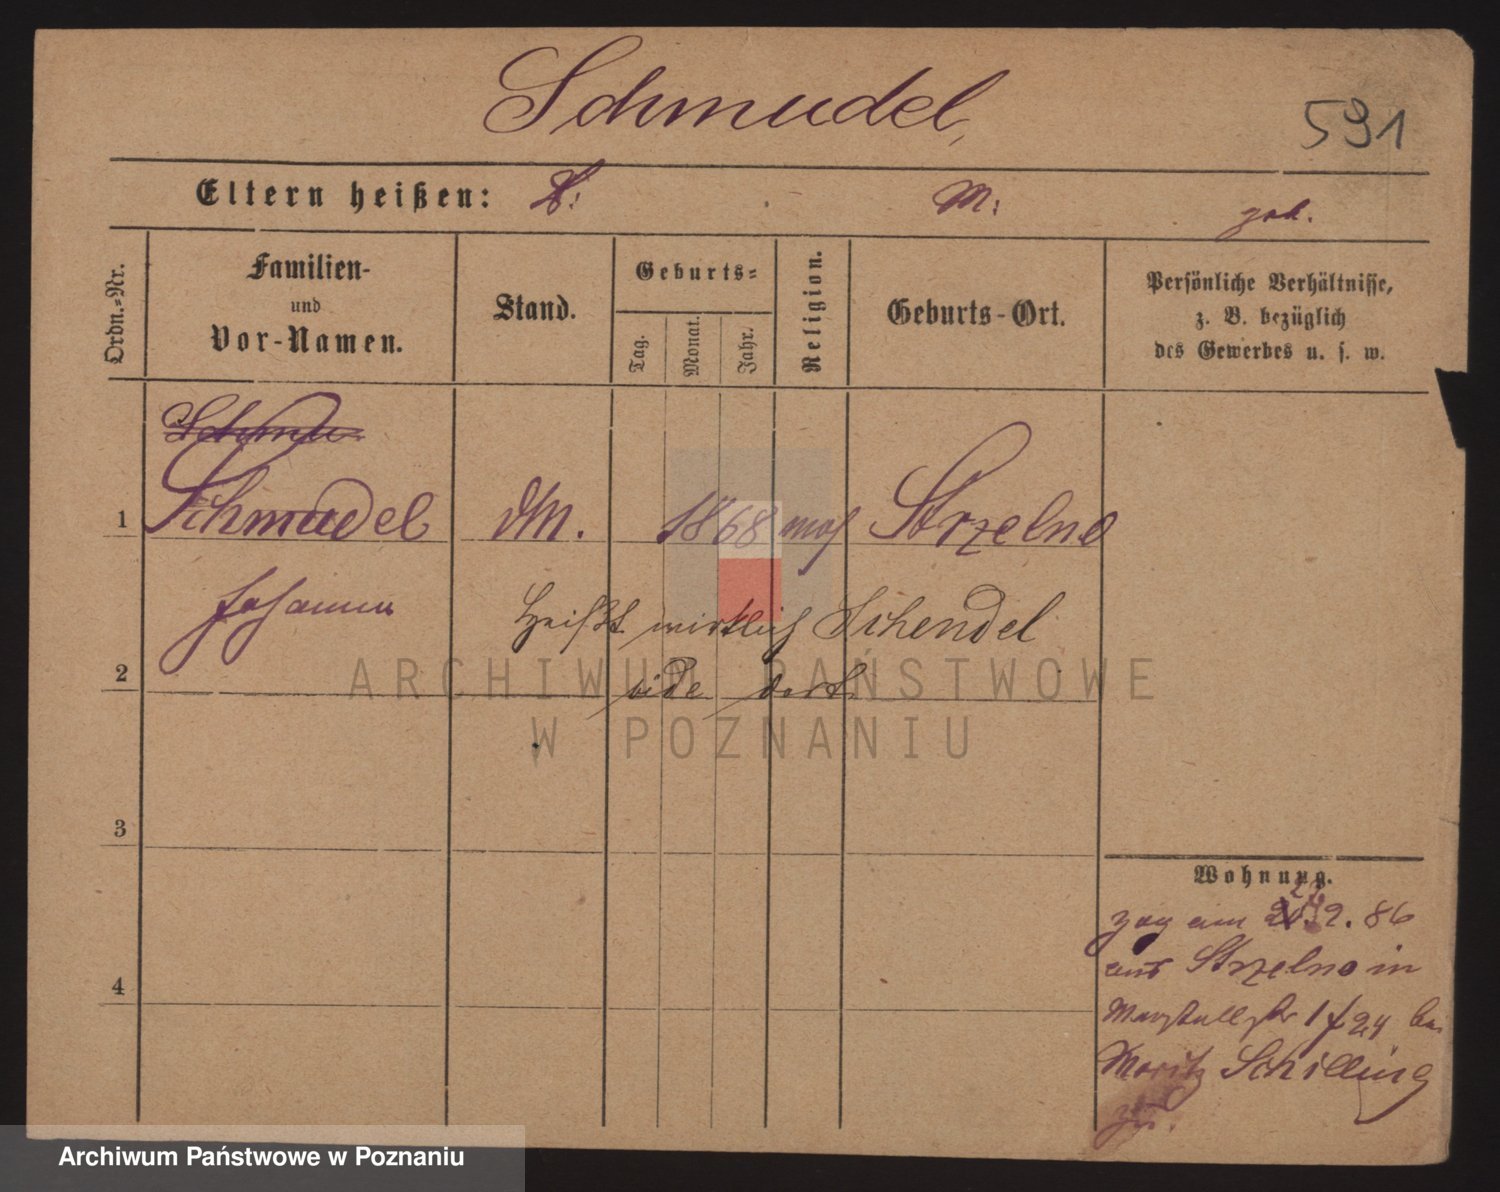 Schmudel,
591
Eltern heißen: V: M: geb.
Ordn.-Nr.
Familien-
und
Vor-Namen.
Stand.
Geburts-
Tag.
Monat.
Jahr.
Religion.
Geburts-Ort.
Persönliche Verhältnisse,
z. B. bezüglich
des Gewerbes u. s. w.
Schmu
1 Schmudel DM. 1868 mos Strzelno
Johanna
Heißt wirklich Schendel
2 vide dort
3
4
Wohnung.
zog am 2. 86
aus Strzelno in
Marstallstr 1 f 24 bei
Moritz Schilling
zu.
ARCHIWUM PAŃSTWOWE
W POZNANIU
Archiwum Państwowe w Poznaniu